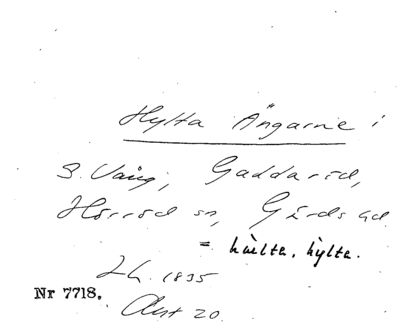 Hylta Ängarne i
3. Vång, Gaddaröd,
Hörröd sn, Gärds hd.
= hỳlta.
Lh. 1835
Nr 7718.
Akt 20